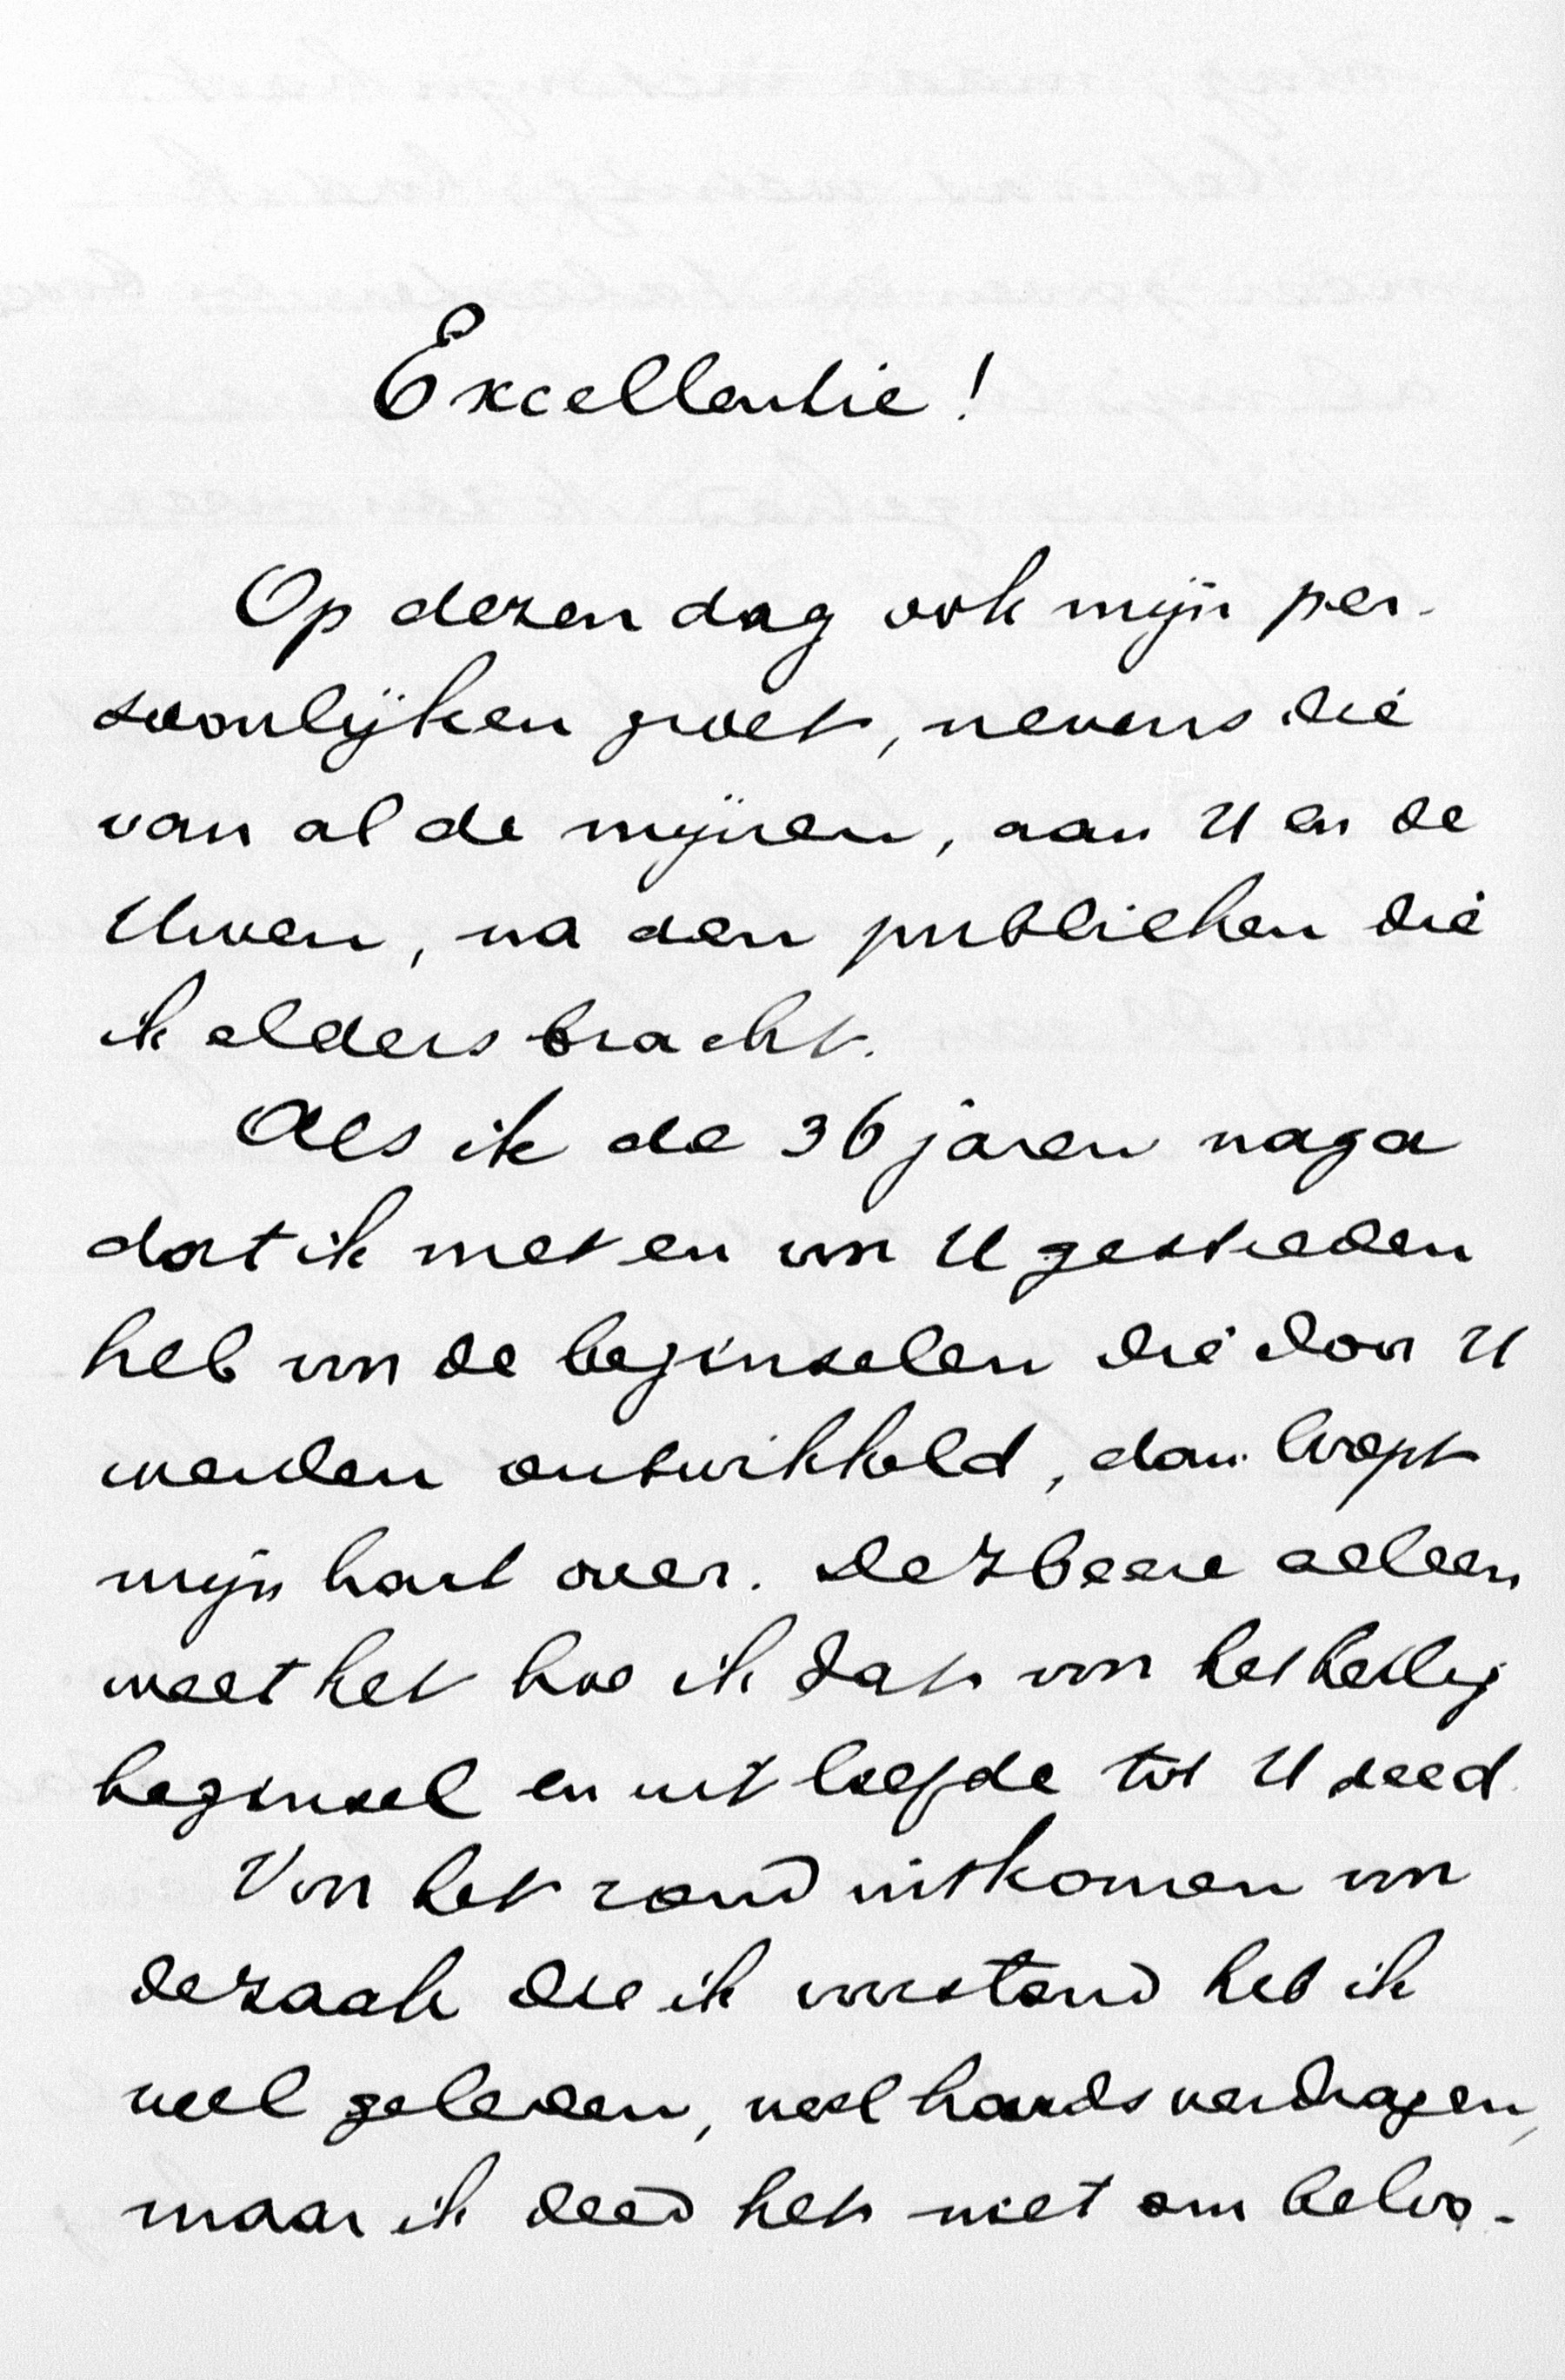 Excellentie!
Op dezen dag ook mijn per-
soonlijken groet, nevens die
van al de mijnen, aan U en de
Uwen, na den publieken die
ik elders bracht.
Als ik de 36 jaren naga
dat ik met en voor U gestreden
heb voor de beginselen die door U
werden ontwikkeld, dan loopt
mijn hart over. De Heere alleen
weet het hoe ik dat voor het heilig
beginsel en uit liefde tot U deed.
Voor het rond uitkomen voor
de zaak die ik voorstond heb ik
veel geleden, veel hards verdragen,
maar ik deed het niet om beloo-